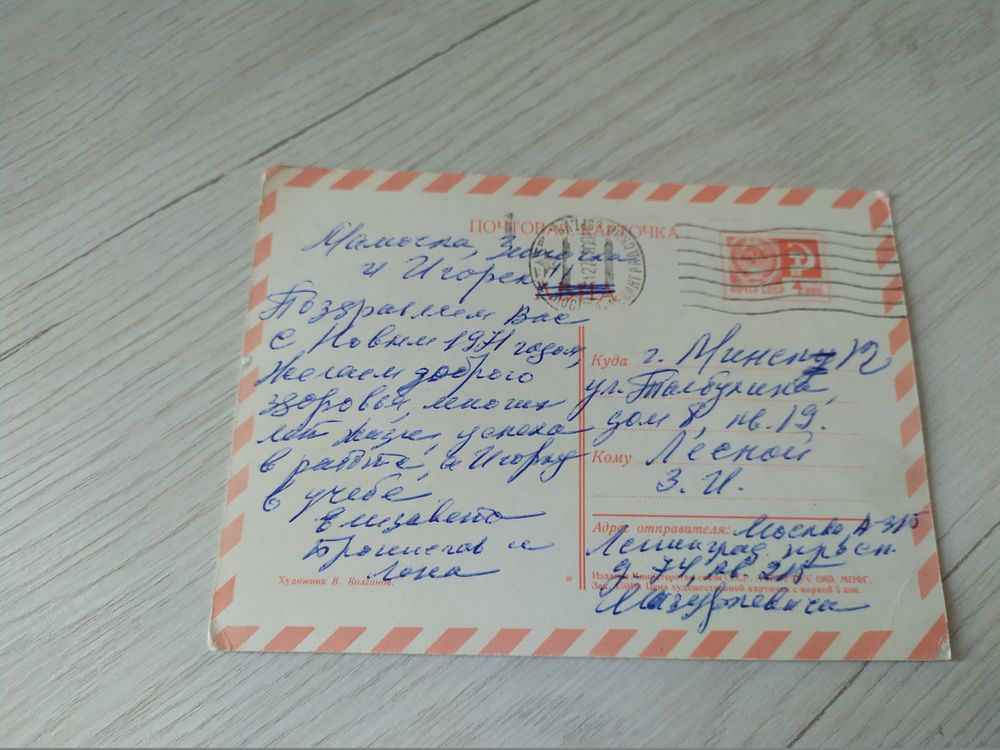 ПОЧТОВАЯ КАРТОЧКА
Мамочка, Зиночка
и Игорек!
Поздравляем Вас
с Новым 1971 годом,
Желаем доброго
здоровья, многих
лет жизни, успеха
в работе, а Игорю
в учебе.
Елизавета
Бронислав и
Художник В. Колганов
ПОЧТА СССР 4 коп.
Куда г. Минск, 12
ул. Толбухина,
дом 8, кв. 19.
Кому Лесной
З. И.
Адрес отправителя: Москва, А-315
Ленинград. просп.
д. 74, кв
Издание Министерства связи СССР. 1969. МПФГ.
Цена художественной карточки с маркой 5 коп.
Мазуркевича